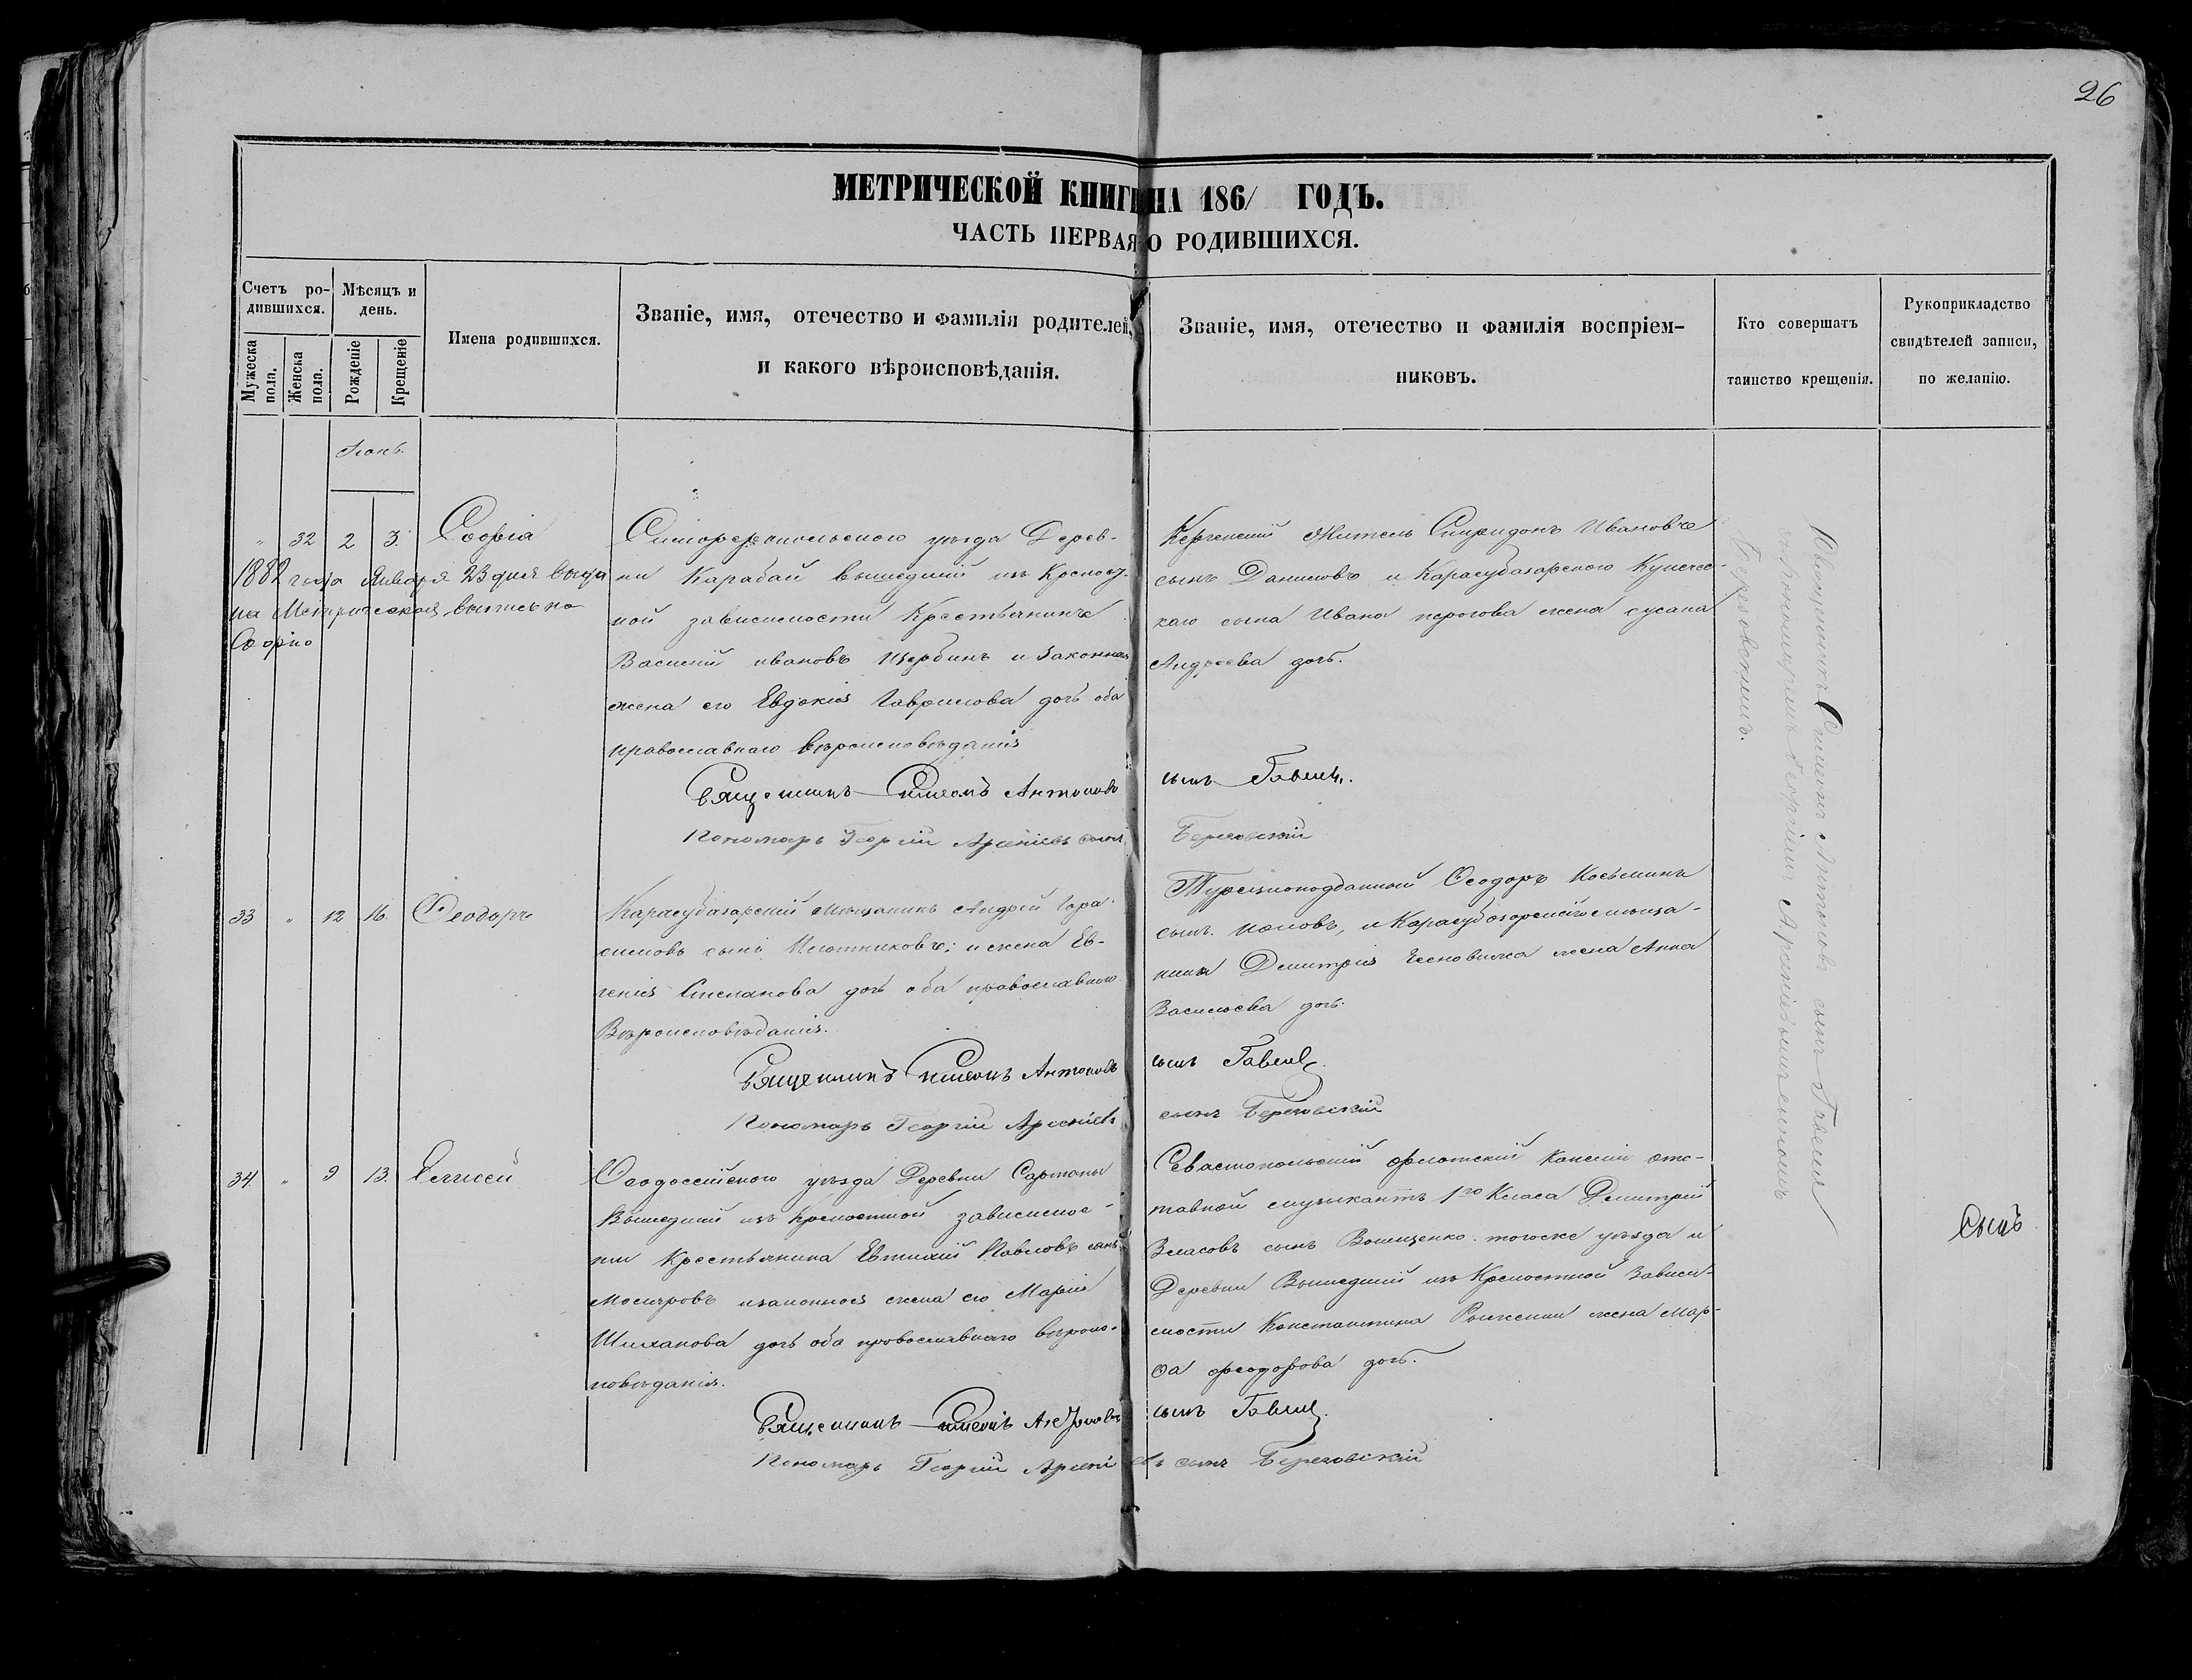 26
МЕТРИЧЕСКОЙ КНИГИ НА 1861 ГОДЪ.
ЧАСТЬ ПЕРВАЯ О РОДИВШИХСЯ.
Счетъ ро-
дившихся.
Мѣсяцъ и
день.
Мужеска пола.
Женска пола.
Рожденіе
Крещеніе
Имена родившихся.
Званіе, имя, отечество и фамилія родителей,
и какого вѣроисповѣданія.
Званіе, имя, отечество и фамилія воспріем-
никовъ.
Кто совершатъ
таинство крещенія.
Рукоприкладство
свидѣтелей записи,
по желанію.
Іюнь.
" 32 2 3. Софія
1882 года Января 23 дня выда
на Метрическая выпись на
Софію
Симферопольского уѣзда Дерев-
ни Карабай вышедшій изъ Крепост-
ной зависимости Крестьянинъ
Василій ивановъ Щербинъ и Законная
жена его Евдокія Гаврилова дочь оба
православнаго вѣроисповѣданія
Священникъ Симеонъ Антоновъ сынъ Гавелл.
Пономарь Георгій Арсеніевъ сынъ Береговскій
Керченскій Житель Спиридонъ Ивановъ
сынъ Даниловъ и Карасубазарского Купечес-
каго сына Ивана перогова жена сусана
Андреева дочь.
Священникъ Симеонъ Антоновъ сынъ Гавелл
съ Пономаремъ Георгіемъ Арсеніевымъ сыномъ
Береговскимъ.
33 " 12 16. Ѳеодоръ
Карасубазарскій мѣщанинъ Андрей Гера-
симовъ сынъ Плотниковъ: и жена Ев-
генія Степанова дочь оба православнаго
Вѣроисповѣданія.
Священникъ Симеонъ Антоновъ сынъ Гавелл.
Пономарь Георгій Арсеніевъ сынъ Береговскій
Турецкоподданной Ѳеодоръ Косьминъ
сынъ Поповъ, и Карасубазарскаго мѣща-
нина Димитрія жена Анна
Васильева дочь.
34. " 9 13. Елисей
Ѳеодосійского уѣзда Деревни Сартаны
Вышедшій изъ Крепостной зависимос-
ти Крестьянина Евтихій Павловъ сынъ
Моляровъ изаконная жена его Марія
дочь оба православнаго вѣроис-
повѣданія.
Священникъ Симеонъ Антоновъ сынъ Гавелл.
Пономарь Георгій Арсеніевъ сынъ Береговскій
Севастопольскій флотскій отс-
тавной музыкантъ 1го Класа Димитрій
Власовъ сынъ тогоже уѣзда и
Деревни Вышедшій изъ Крепостной Зависи-
мости Константина жена Мар-
ѳа феодорова дочь.
Сынъ